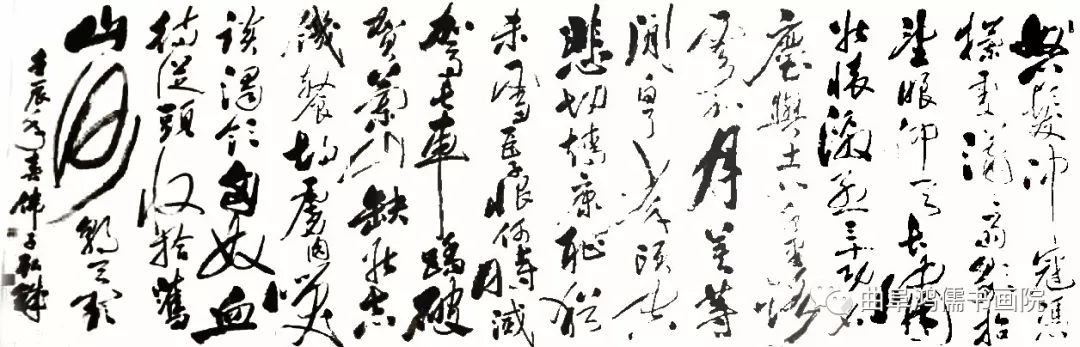 怒髮冲冠憑
欄處瀟瀟雨歇抬
望眼仰天長嘯
壯懷激烈三十功名
塵與土八千里路
雲和月莫等
閒白了少年頭空
悲切靖康恥猶
未雪臣子恨何時滅
駕長車踏破
賀蘭山缺壯志
饑餐胡虜肉笑
談渴飲匈奴血
待從頭收拾舊
山河朝天闕
壬辰年春佛子弘
曲阜鸿儒书画院